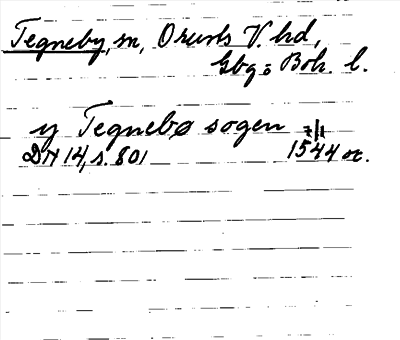 Tegneby, sn, Orusts V. hd,
Gbg o Boh. l.
y Tegnebø sogen
DN 14, s. 801 1544 or.